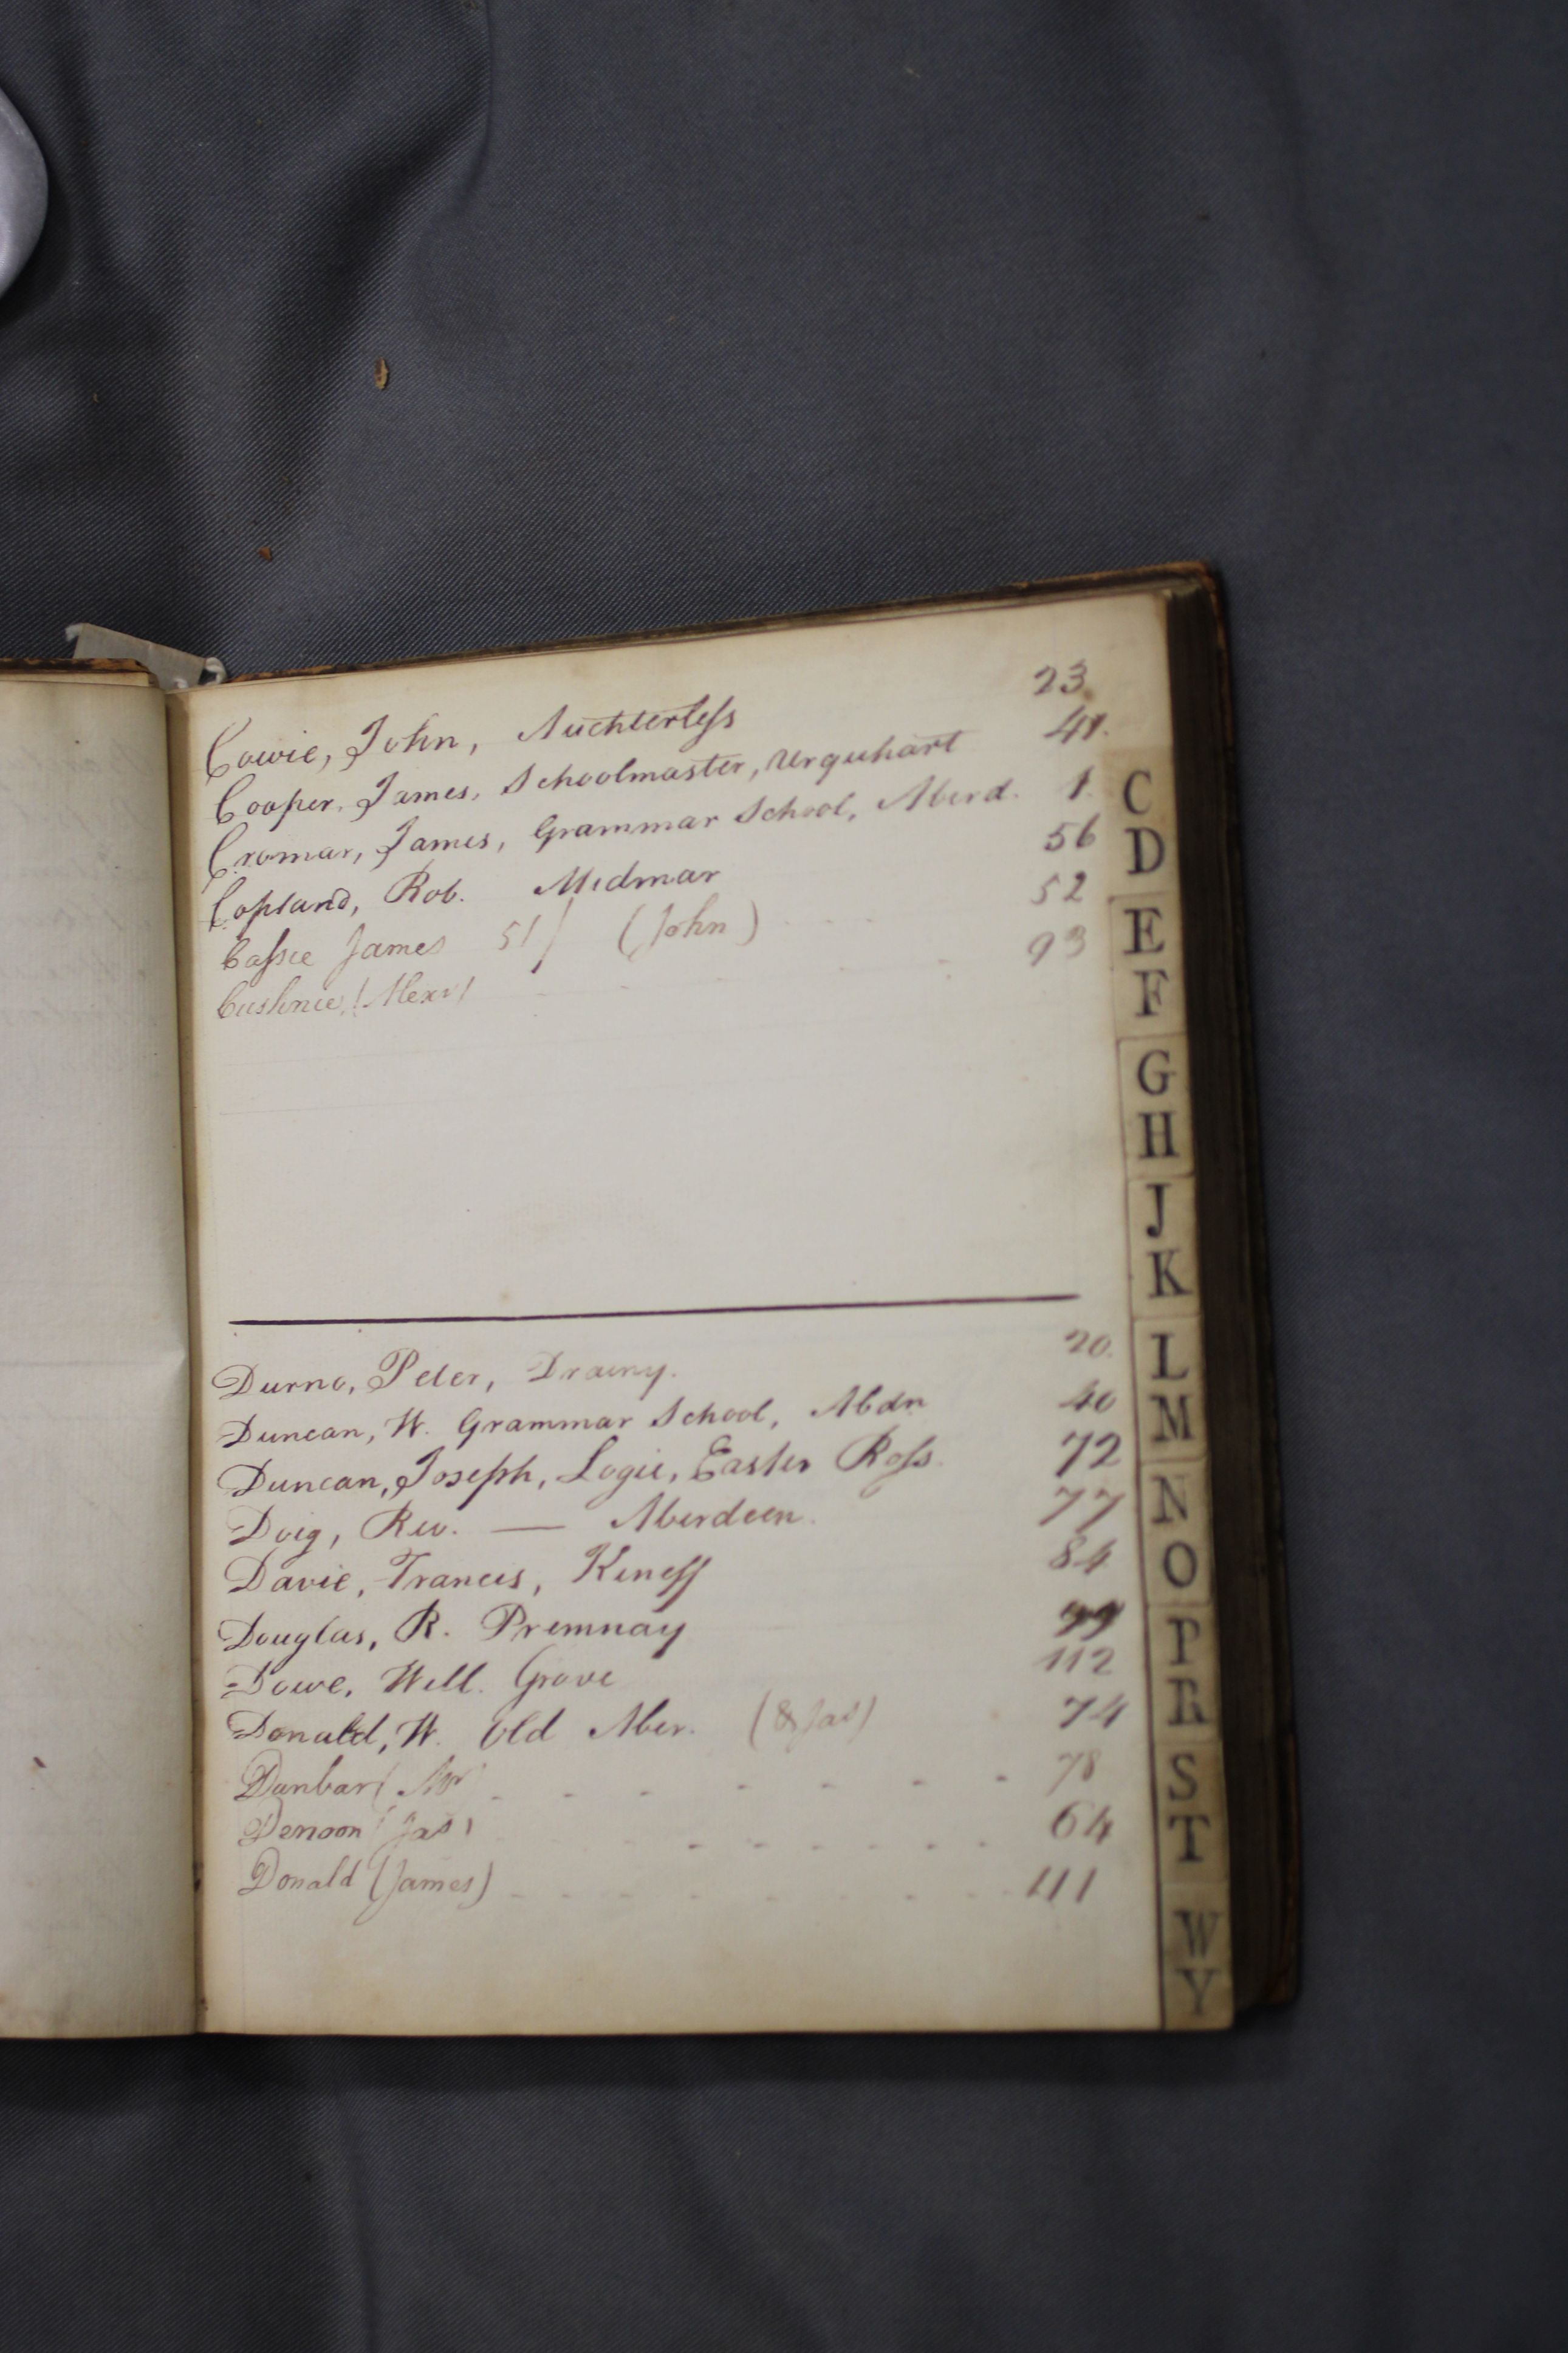 Cowie, John, Auchterless 23
Cooper, James, Schoolmaster, Urquhart 41.
Cromar, James, Grammar School, Aberd. 1.
Copland, Rob. Midmar 56
Cassie James 51/ (John) 52
Cushnie (Alexr) 93
Durno, Peter, Drainy. 20.
Duncan, W. Grammar School, Abdn 40
Duncan, Joseph, Logie, Easter Ross. 72
Doig, Rev. — Aberdeen. 77
Davie, Francis, Kineff 84
Douglas, R. Premnay 99
Dowe, Will. Grove 112
Donald, W. Old Aber. (& Jas) 74
Dunbar 78
Denoon (Jas) 64
Donald (James) 111
C
D
E
F
G
H
J
K
L
M
N
O
P
R
S
T
W
Y